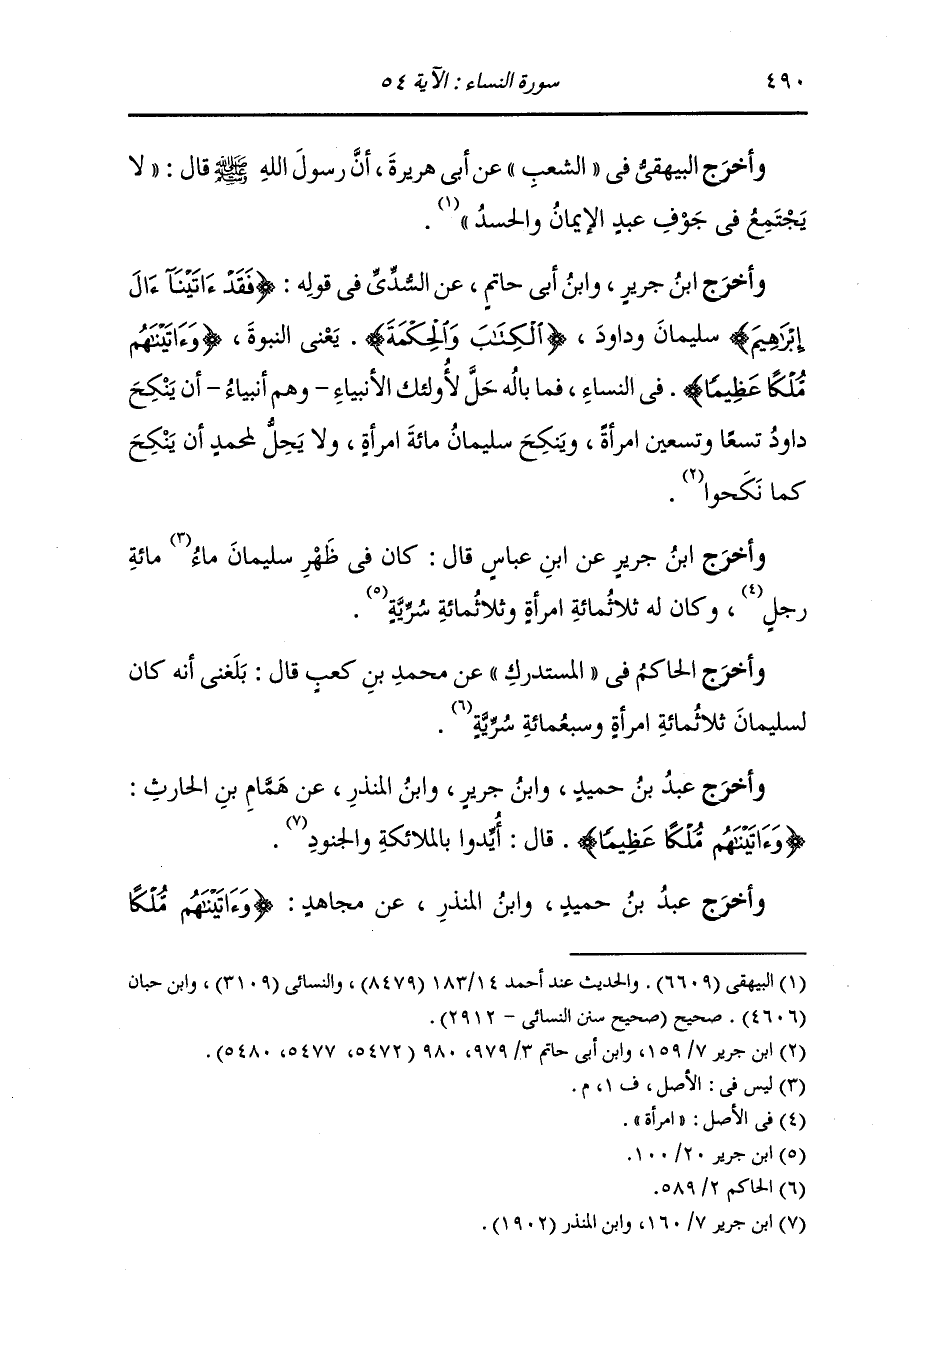 ٤٩٠ سورة النساء : الآية ٥٤
وأخرَج البيهقىُّ فى « الشعبِ » عن أبى هريرةَ ، أنَّ رسولَ اللهِ ﷺ قال : « لا
يَجْتَمِعُ فى جَوْفِ عبدٍ الإيمانُ والحسدُ »(١) .
وأخرَج ابنُ جريرٍ ، وابنُ أبى حاتمٍ ، عن السُّدِّىِّ فى قولِه : ﴿فَقَدْ ءَاتَيْنَآ ءَالَ
إِبْرَٰهِيمَ﴾ سليمانَ وداودَ ، ﴿ٱلْكِتَٰبَ وَٱلْحِكْمَةَ﴾ . يَعْنى النبوةَ ، ﴿وَءَاتَيْنَٰهُم
مُّلْكًا عَظِيمًا﴾ . فى النساءِ ، فما بالُه حَلَّ لأُولئك الأنبياءِ – وهم أنبياءُ – أن يَنْكِحَ
داودُ تسعًا وتسعين امرأةً ، ويَنكِحَ سليمانُ مائةَ امرأةٍ ، ولا يَحِلُّ لمحمدٍ أن يَنْكِحَ
كما نَكَحوا(٢) .
وأخرَج ابنُ جريرٍ عن ابنِ عباسٍ قال : كان فى ظَهْرِ سليمانَ ماءُ(٣) مائةِ
رجلٍ(٤) ، وكان له ثلاثُمائةِ امرأةٍ وثلاثُمائةِ سُرِّيَّةٍ(٥) .
وأخرَج الحاكمُ فى « المستدركِ » عن محمدِ بنِ كعبٍ قال : بَلَغنى أنه كان
لسليمانَ ثلاثُمائةِ امرأةٍ وسبعُمائةِ سُرِّيَّةٍ(٦) .
وأخرَج عبدُ بنُ حميدٍ ، وابنُ جريرٍ ، وابنُ المنذرِ ، عن هَمَّامِ بنِ الحارثِ :
﴿وَءَاتَيْنَٰهُم مُّلْكًا عَظِيمًا﴾ . قال : أُيِّدوا بالملائكةِ والجنودِ(٧) .
وأخرَج عبدُ بنُ حميدٍ ، وابنُ المنذرِ ، عن مجاهدٍ : ﴿وَءَاتَيْنَٰهُم مُّلْكًا
(١) البيهقى (٦٦٠٩) . والحديث عند أحمد ١٨٣/١٤ (٨٤٧٩) ، والنسائى (٣١٠٩) ، وابن حبان
(٤٦٠٦) . صحيح (صحيح سنن النسائى – ٢٩١٢) .
(٢) ابن جرير ٧/ ١٥٩، وابن أبى حاتم ٣/ ٩٧٩، ٩٨٠ (٥٤٧٢، ٥٤٧٧، ٥٤٨٠) .
(٣) ليس فى : الأصل ، ف ١، م .
(٤) فى الأصل : « امرأة » .
(٥) ابن جرير ٢٠/ ١٠٠.
(٦) الحاكم ٢/ ٥٨٩.
(٧) ابن جرير ٧/ ١٦٠، وابن المنذر (١٩٠٢) .